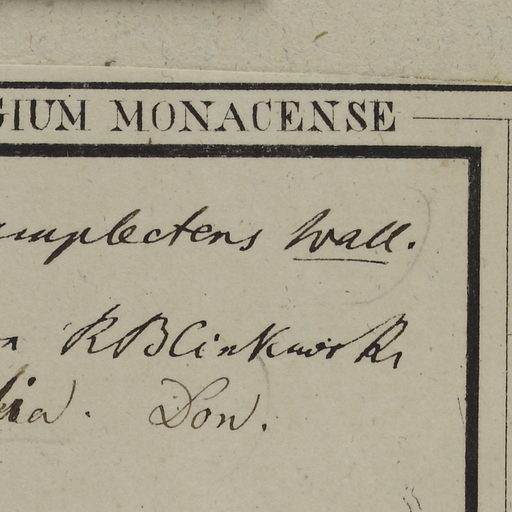 GIUM MONACENSE
amplectens Wall.
R B Clinkworks
dia. Don.